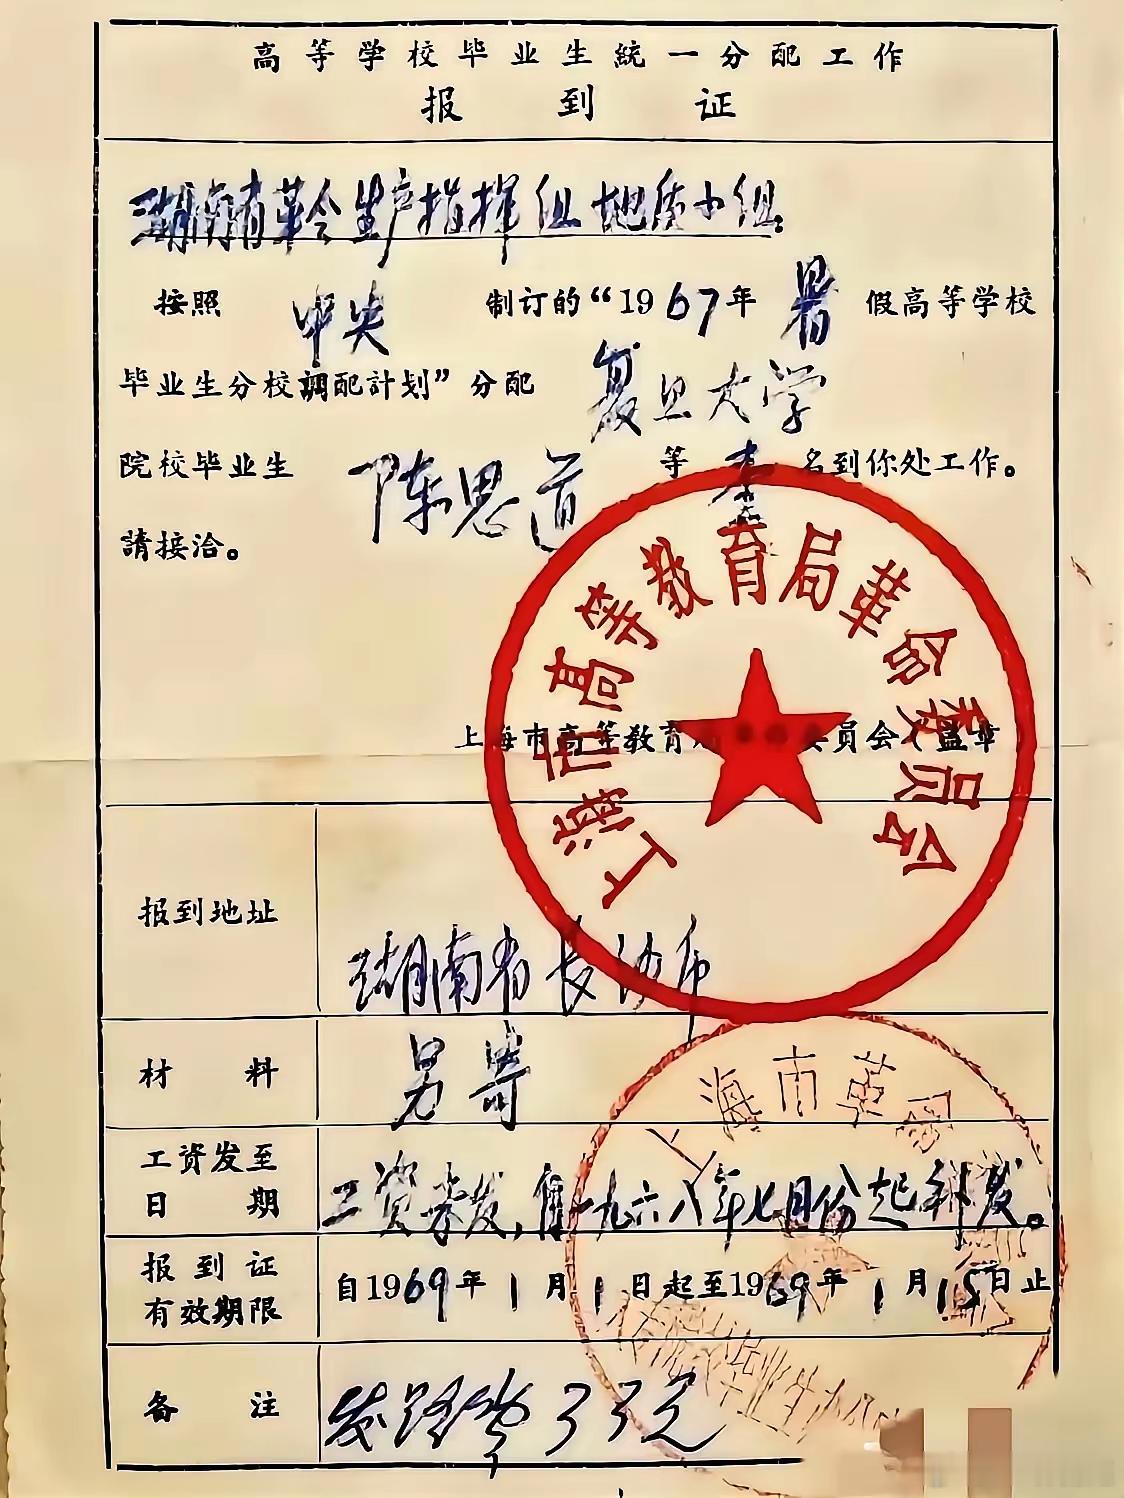 高等学校毕业生統一分配工作
报到证
湖南省革会生产指挥组地质小组
按照 中央 制订的“1967年 暑 假高等学校
毕业生分校調配計划”分配 复旦大学
院校毕业生 陈思道 等 壹 名到你处工作。
請接洽。
上海市高等教育局革命委員会(盖章
上海市高等教育局革命委员会
报到地址 湖南省长沙市
材料 另寄
上海市革
工资发至日期 工资未发,自一九六八年七月份起补发。
报到证有效期限 自1969年1月1日起至1969年1月15日止
毕业生办公
备注 发路费33元